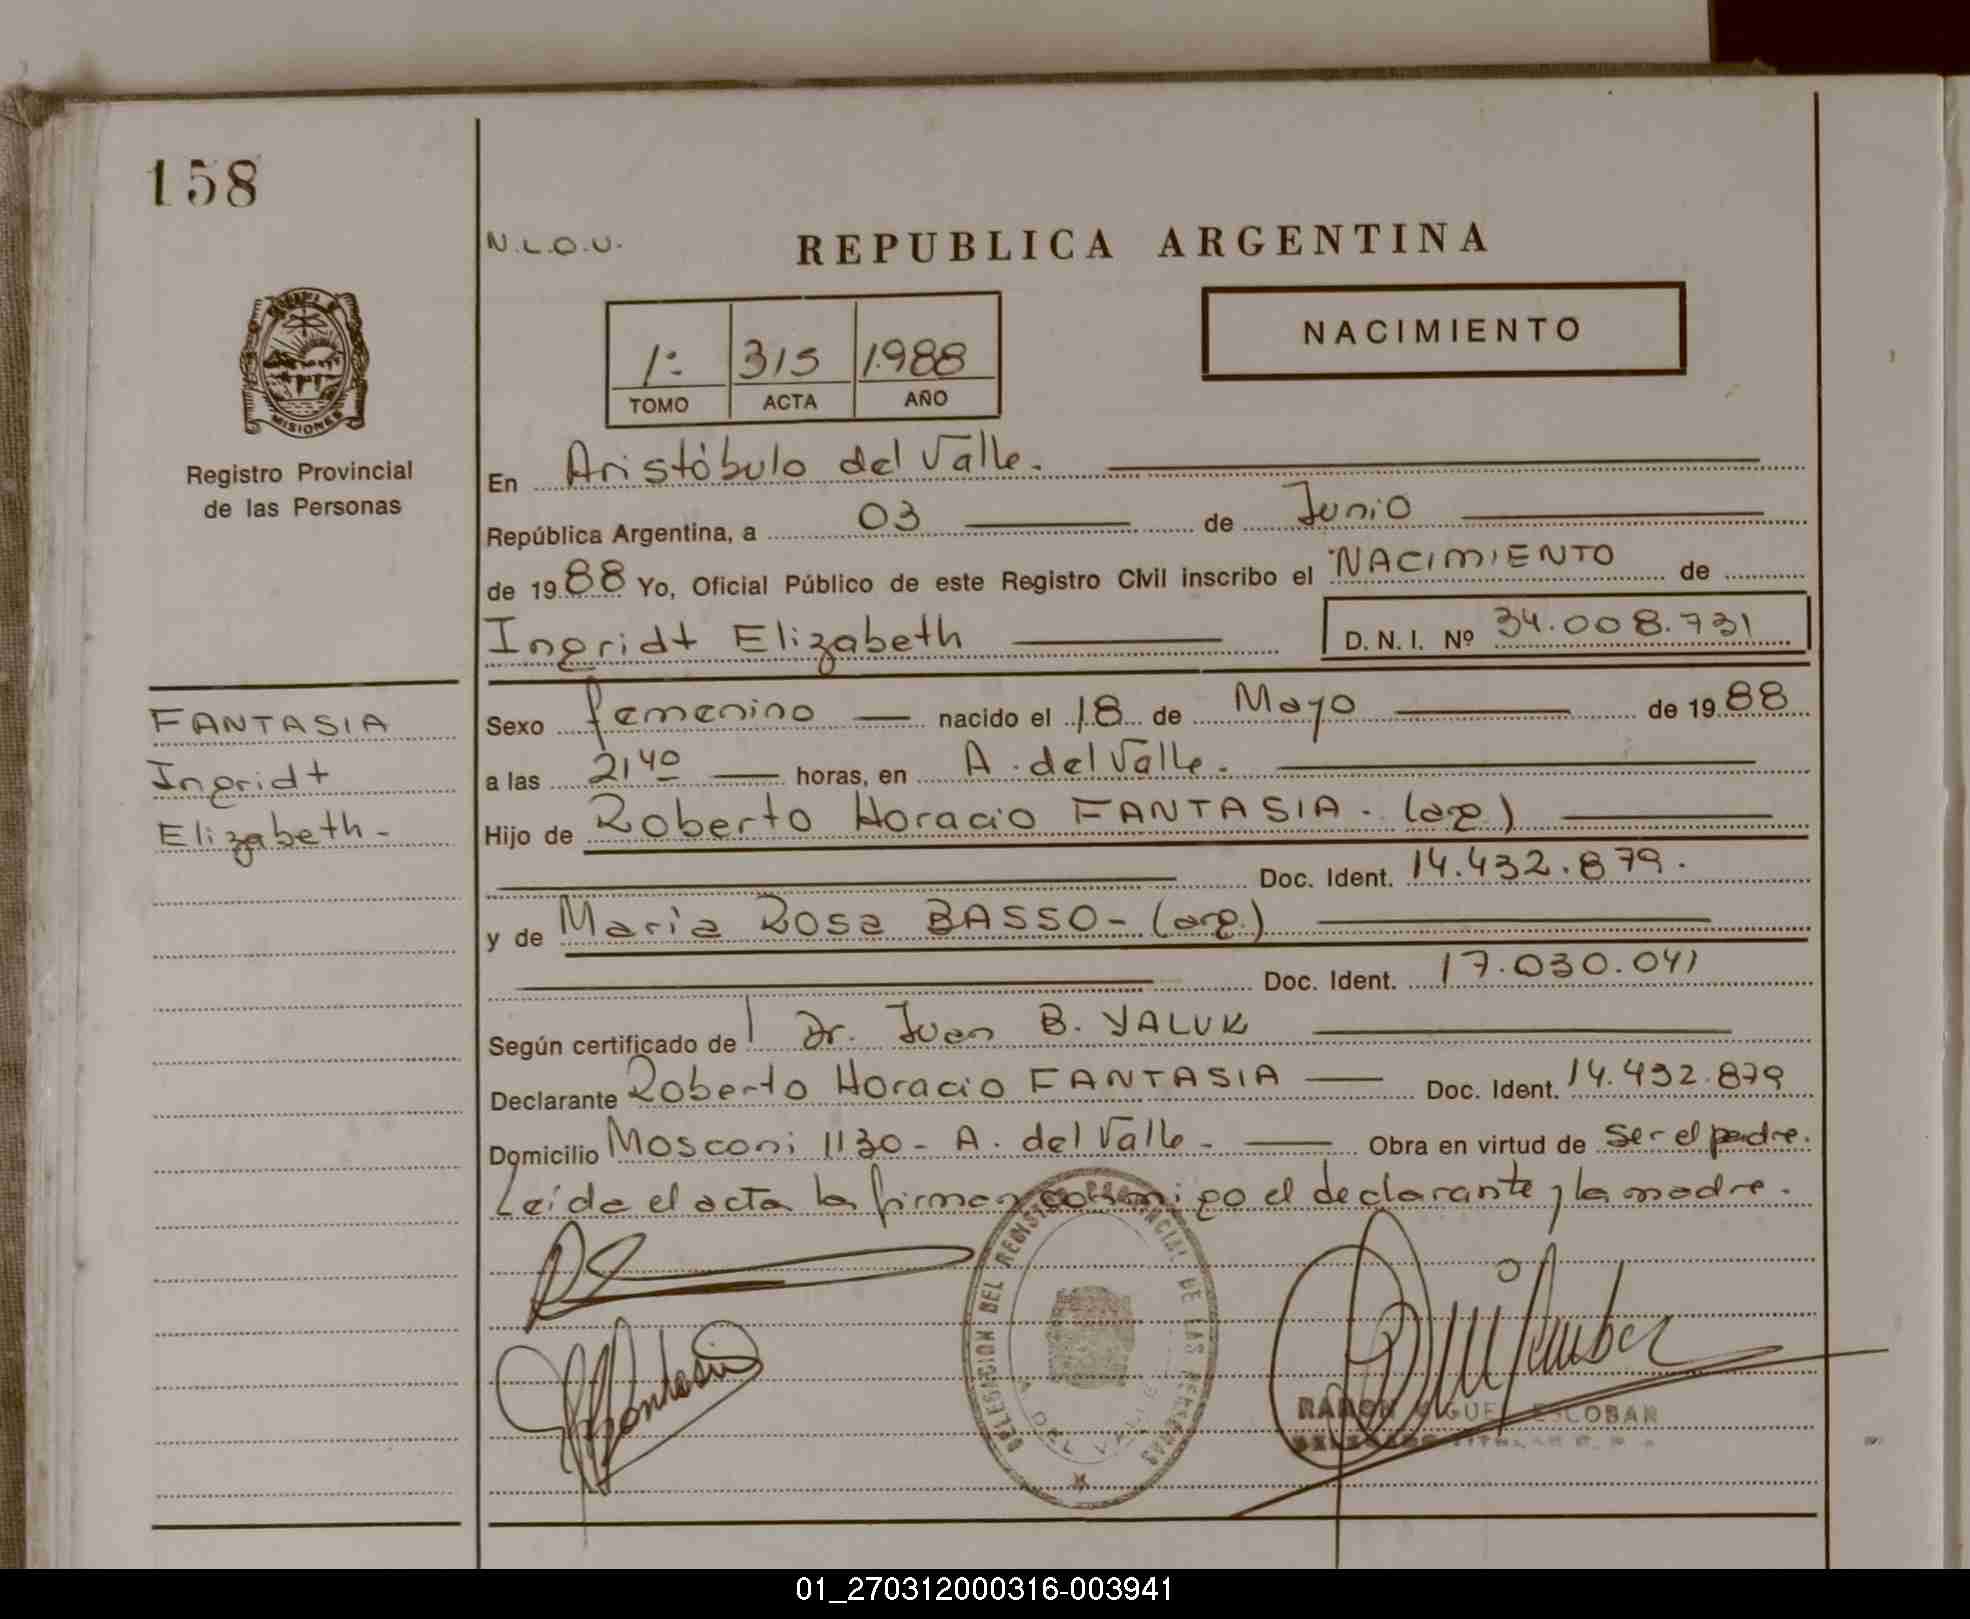 158
N.L.O.U.
REPUBLICA ARGENTINA
NACIMIENTO
1º 315 1988
TOMO ACTA AÑO
MISIONES
Registro Provincial
de las Personas
En Aristóbulo del Valle.
República Argentina, a 03 de Junio
de 1988 Yo, Oficial Público de este Registro Civil inscribo el NACIMIENTO de
Ingridt Elizabeth D.N.I. Nº 34.008.731
FANTASIA
Ingridt
Elizabeth-
Sexo femenino nacido el 18 de Mayo de 1988
a las 21,40 horas, en A. del Valle.
Hijo de Roberto Horacio FANTASIA. (arg.)
Doc. Ident. 14.432.879.
y de Maria Rosa BASSO- (arg.)
Doc. Ident. 17.030.041
Según certificado de Dr. Juan B. YALUK
Declarante Roberto Horacio FANTASIA Doc. Ident. 14.432.879
Domicilio Mosconi 1130- A. del Valle- Obra en virtud de ser el padre.
Leída el acta la firman conmigo el declarante y la madre.
DELEGACION DEL REGISTRO PROVINCIAL DE LAS PERSONAS
A. DEL VALLE
RAMON MIGUEL ESCOBAR
01_270312000316-003941